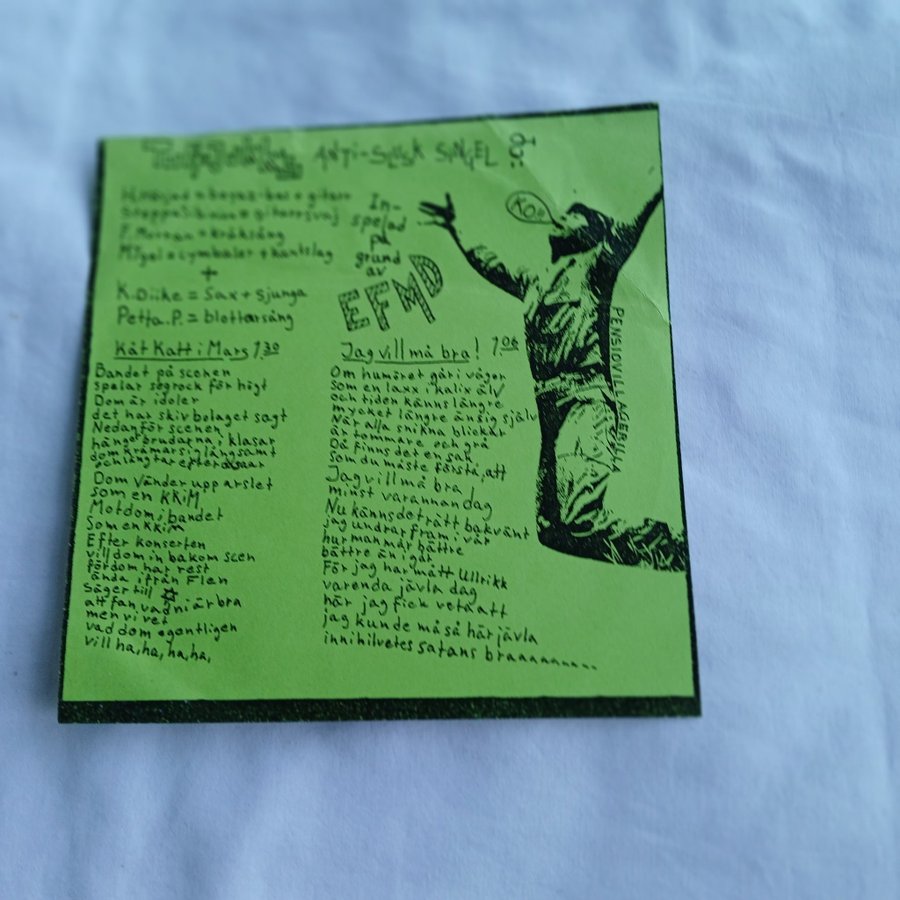 ANTI-SUSK SINGEL
F. Moroan = kråksång
Migel = cymbaler + kantslag
+
K. Diike = Sax + sjunga
Petta. P. = blottarsång
In-
spelad
på
grund
av
EFMD
KO..
PENSIONVILLAGERILLA
Kåt Katt i Mars 1.30
Bandet på scenen
spelar sogrock för högt
Dom är idoler
det har skivbolaget sagt
Nedanför scenen
hänger brudarna i klasar
dom krämar sin långsamt
och längtar efter
Dom vänder upp arslet
som en KKiM
Mot dom i bandet
Som en KKiM
Efter konserten
vill dom in bakom scen
för dom har rest
ända ifrån Flen
Säger till
att fan vad ni är bra
men vi vet
vad dom egontligen
vill ha, ha, ha, ha,
Jag vill må bra! 1.06
Om humöret går i vågor
som en laxx i kalix älv
och tiden känns längre
mycket längre än sig själv
När alla snikna blickar
är tommare och grå
Då finns det en sak
som du måste förstå, att
Jag vill må bra
minst varannan dag
Nu känns det rått bakvänt
jag undrar fram i vår
hur man mår bättre
bättre än igår
För jag har mått Ullrikk
varenda jävla dag
här jag fick veta att
jag kunde må så här jävla
inni hilvetes satans braaaaaaaaa...